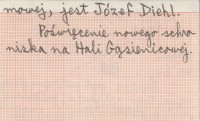 mowej, jest Józef Diehl.
Poświęcenie nowego schro-
niska na Hali Gąsienicowej.